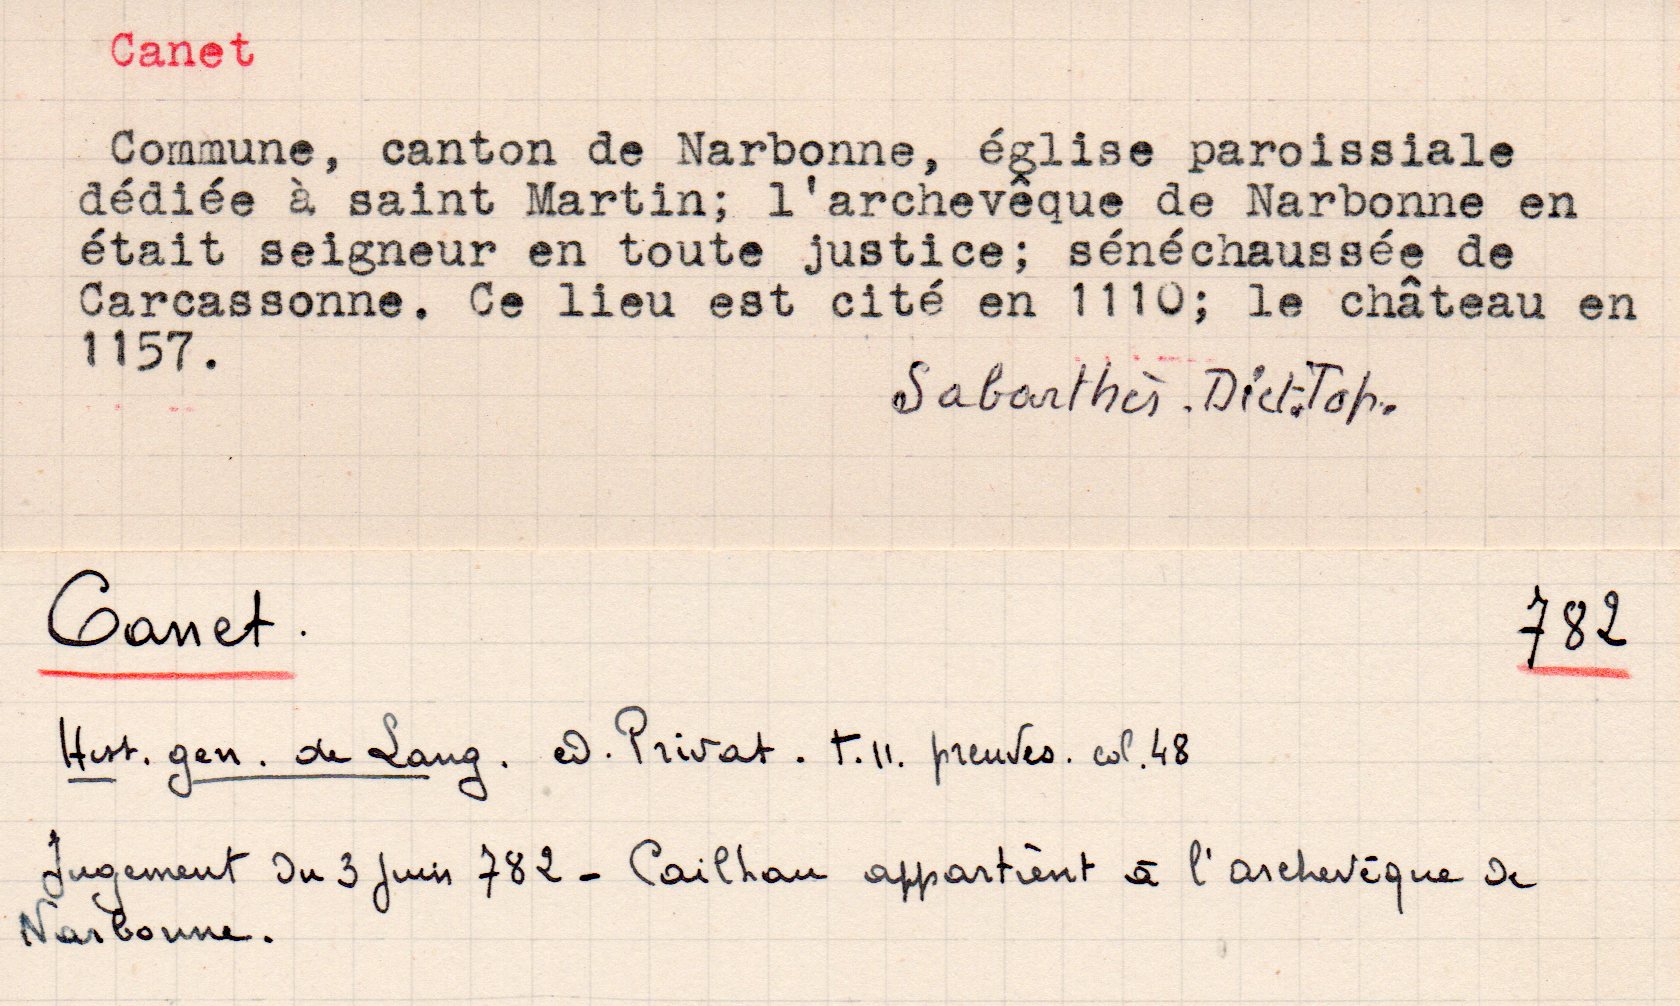 Canet
Commune, canton de Narbonne, église paroissiale
dédiée à saint Martin; l'archevêque de Narbonne en
était seigneur en toute justice; sénéchaussée de
Carcassonne. Ce lieu est cité en 1110; le château en
1157.
Sabarthès. Dict. Top.
Canet. 782
Hist. gen. de Lang. ed. Privat. t. 11. preuves. col. 48
Jugement du 3 Juin 782 - Cailhau appartient à l'archevêque de
Narbonne.